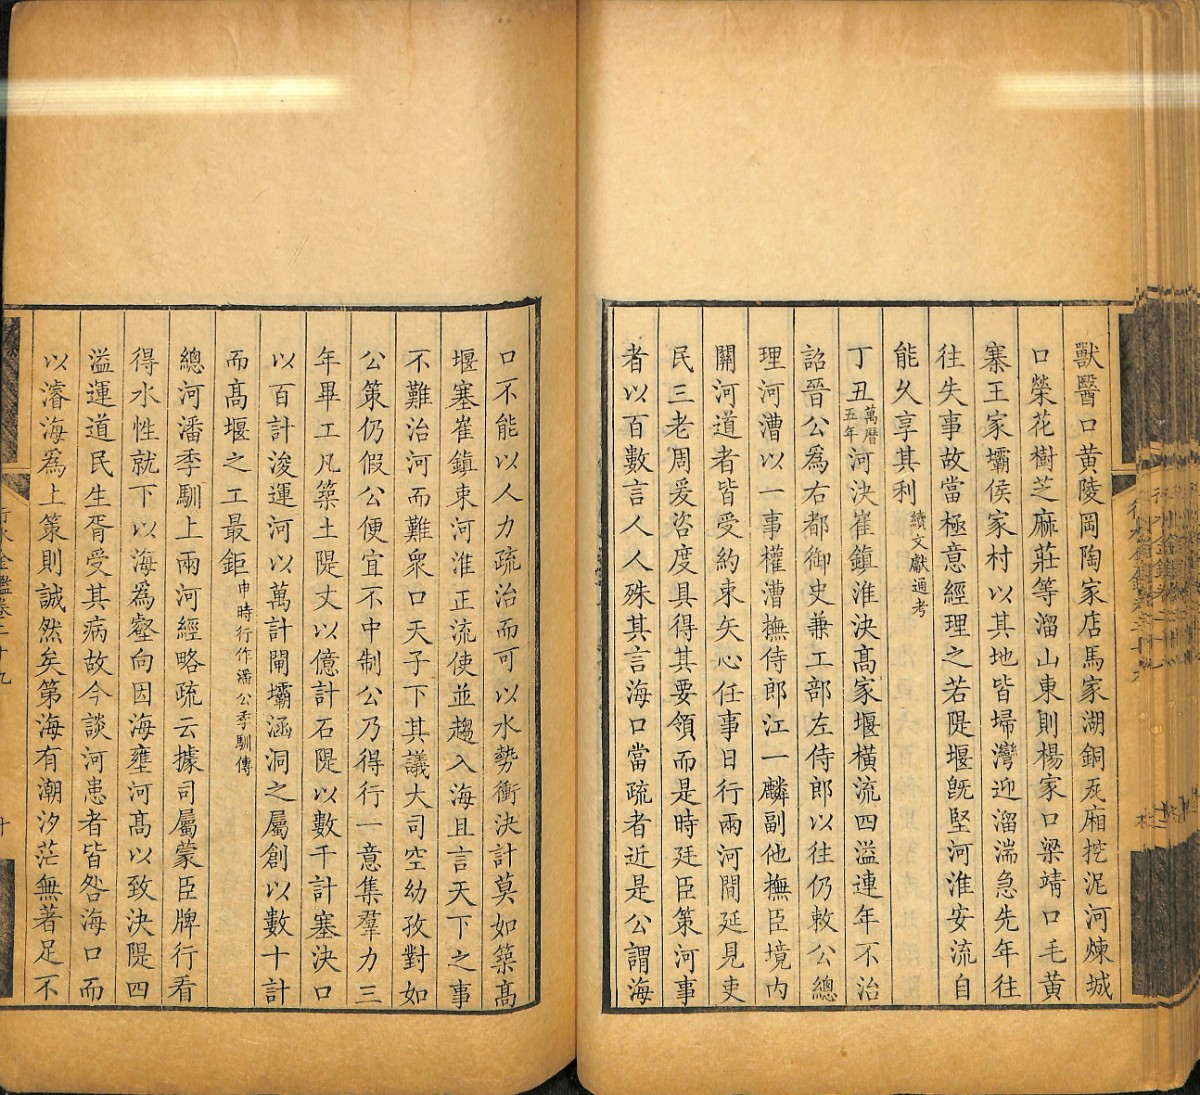 獸醫口黄陵岡陶家店馬家湖銅瓦廂挖泥河煉城
口榮花樹芝麻莊等溜山東則楊家口梁靖口毛黄
寨王家壩侯家村以其地皆埽灣迎溜湍急先年往
往失事故當極意經理之若隄堰旣堅河淮安流自
能久享其利續文獻通考
丁丑萬曆五年河決崔鎮淮決髙家堰橫流四溢連年不治
詔晉公爲右都御史兼工部左侍郎以往仍敕公總
理河漕以一事權漕撫侍郎江一麟副他撫臣境内
關河道者皆受約束矢心任事日行兩河間延見吏
民三老周爰咨度具得其要領而是時廷臣策河事
者以百數言人人殊其言海口當疏者近是公謂海
口不能以人力疏治而可以水勢衝決計莫如築髙
堰塞崔鎮束河淮正流使並趨入海且言天下之事
不難治河而難衆口天子下其議大司空幼孜對如
公策仍假公便宜不中制公乃得行一意集羣力三
年畢工凡築土隄丈以億計石隄以數千計塞決口
以百計浚運河以萬計閘壩涵洞之屬創以數十計
而髙堰之工最鉅申時行作潘公季馴傳
總河潘季馴上兩河經略疏云據司屬蒙臣牌行看
得水性就下以海爲壑向因海壅河髙以致決隄四
溢運道民生胥受其病故今談河患者皆咎海口而
以濬海爲上策則誠然矣第海有潮汐茫無著足不
行水金鑑卷二十九
十